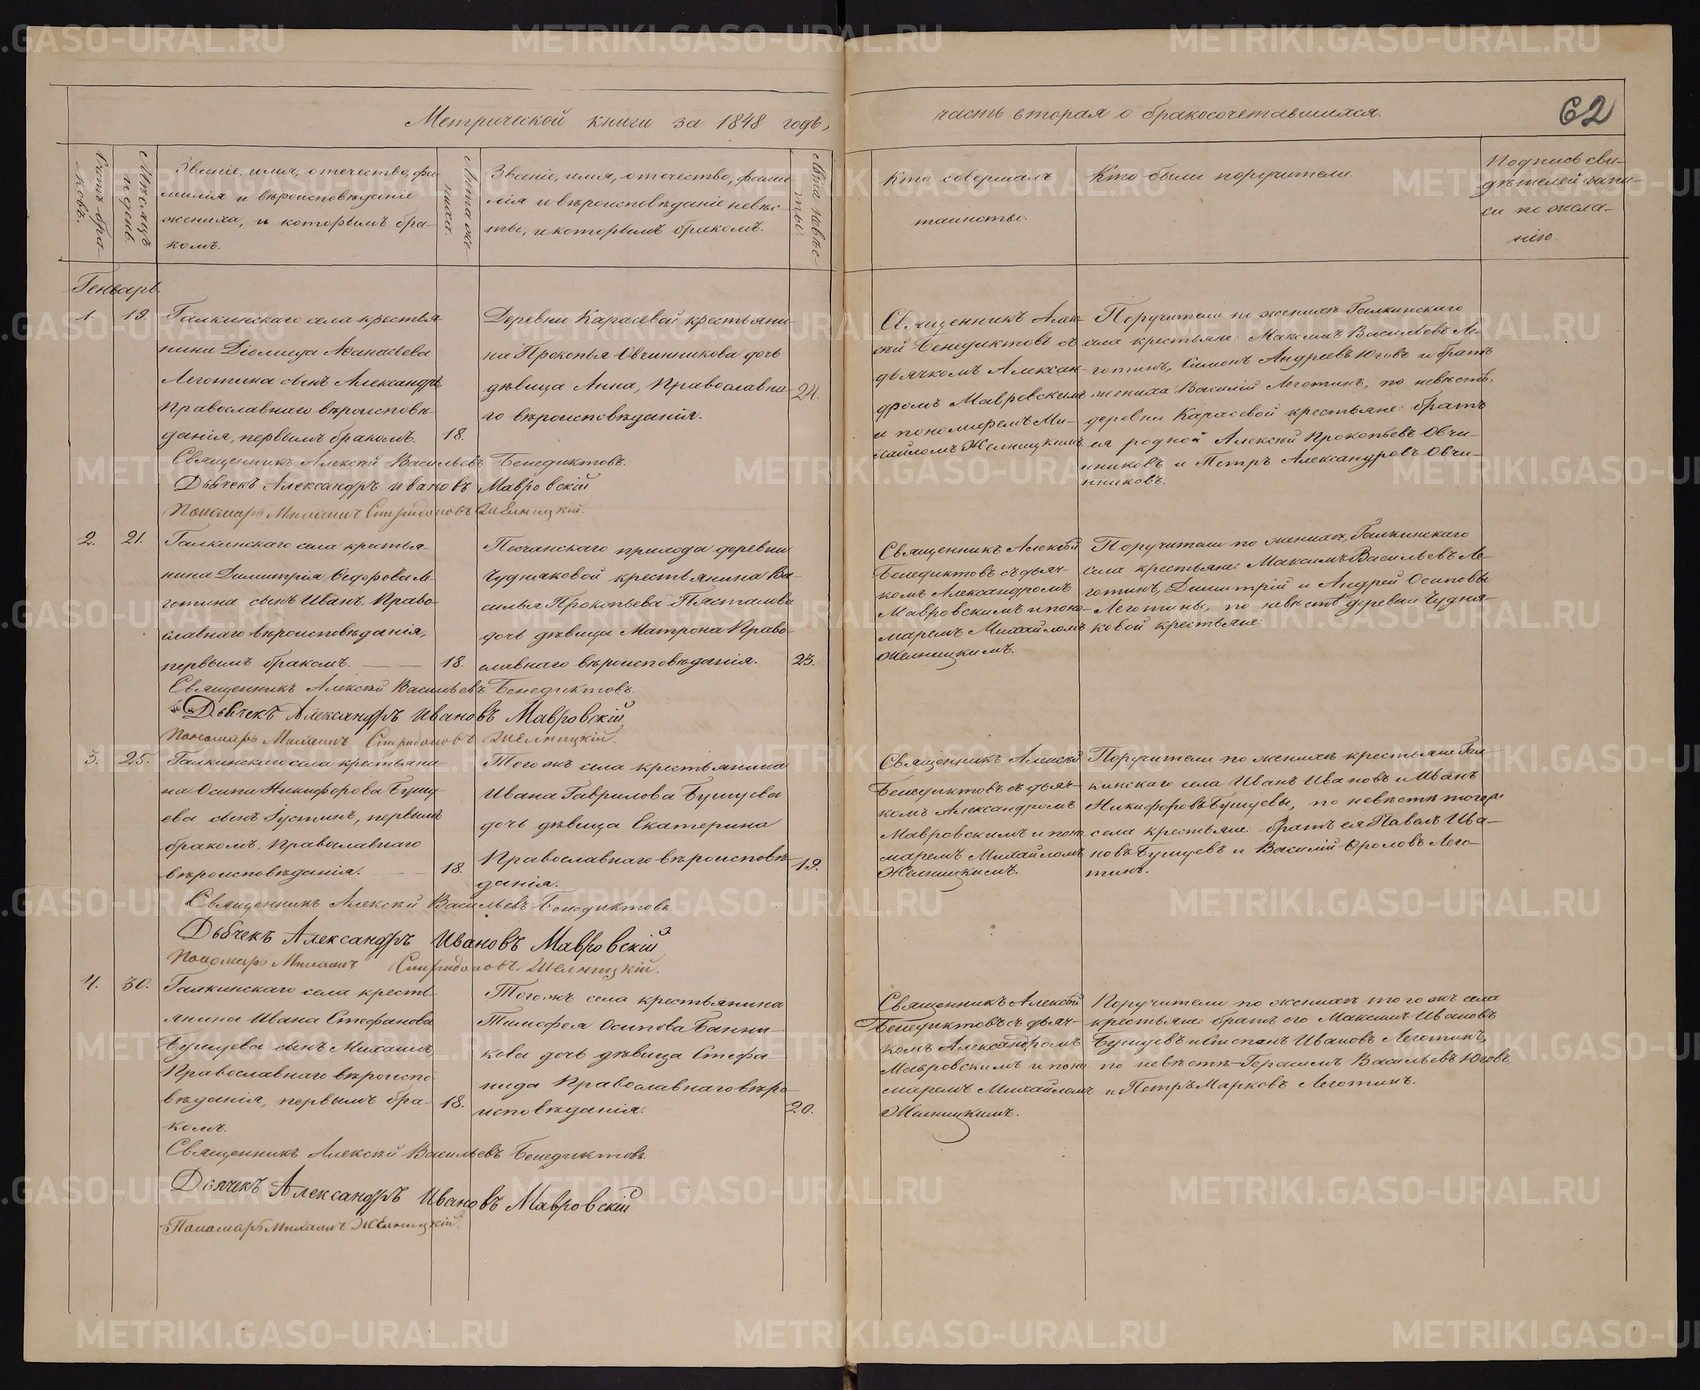 Метрической книги за 1848 годъ,
часть вторая о бракосочетавшихся.
62
Счетъ бра-
ковъ.
Мѣсяцъ
и день.
Званіе, имя, отечество, фа-
милія и вѣроисповѣданіе
жениха, и которымъ бра-
комъ.
Лѣта же-
ниха.
Званіе, имя, отечество, фами-
лія и вѣроисповѣданіе невѣс-
ты, и которымъ бракомъ.
Лѣта невѣс-
ты.
Кто совершалъ
таинство.
Кто были поручители.
Подпись сви-
дѣтелей запи-
си по жела-
нію.
Генварь.
1.
19.
Галкинскаго села крестья-
нина Діомида Аѳанасьева
Леготина сынъ Александръ,
Православнаго вѣроисповѣ-
данія, первымъ бракомъ.
18.
Деревни Карасевой крестьяни-
на Прокопья Овчинникова дочь
дѣвица Анна, Православна-
го вѣроисповѣданія.
24.
Священникъ Алек-
сій Бенедиктовъ съ
дьячкомъ Алексан-
дромъ Мавровскимъ
и пономаремъ Ми-
хайломъ Желницкимъ
Поручители по женихѣ Галкинскаго
села крестьяне: Максимъ Васильевъ Ле-
готинъ, Симонъ Андреевъ Юговъ и братъ
жениха Василій Леготинъ, по невѣстѣ,
деревни Карасевой крестьяне: братъ
ея родной Алексѣй Прокопьевъ Овчи-
нниковъ и Петръ Александровъ Овчи-
нниковъ.
Священникъ Алексій Васильевъ Бенедиктовъ.
Дьячекъ Александръ Ивановъ Мавровскій
Пономарь Михаилъ Спиридоновъ Желницкій.
2.
21.
Галкинскаго села крестья-
нина Димитрія Ѳедорова Ле-
готина сынъ Иванъ, Право-
славнаго вѣроисповѣданія,
первымъ бракомъ.
18.
Песчанскаго прихода деревни
Чудняковой крестьянина Ва-
силья Прокопьева Пясталова
дочь дѣвица Матрона Право-
славнаго вѣроисповѣданія.
23.
Священникъ Алексій
Бенедиктовъ съ дьяч-
комъ Александромъ
Мавровскимъ и поно-
маремъ Михайломъ
Желницкимъ.
Поручители по женихѣ, Галкинскаго
села крестьяне: Максимъ Васильевъ Ле-
готинъ, Димитрій и Андрей Осиповы
Леготины, по невѣстѣ деревни Чудня-
ковой крестьяне:
Священникъ Алексій Васильевъ Бенедиктовъ.
Дьячекъ Александръ Ивановъ Мавровскій
Пономарь Михаилъ Спиридоновъ Желницкій.
3.
25.
Галкинскаго села крестьяни-
на Осипа Никифорова Бушу-
ева сынъ Іустинъ, первымъ
бракомъ, Православнаго
вѣроисповѣданія.
18.
Того жъ села крестьянина
Ивана Гаврилова Бушуева
дочь дѣвица Екатерина
Православнаго вѣроисповѣ-
данія.
19.
Священникъ Алексій
Бенедиктовъ съ дьяч-
комъ Александромъ
Мавровскимъ и поно-
маремъ Михайломъ
Желницкимъ.
Поручители по женихѣ крестьяне Гал-
кинскаго села Иванъ Ивановъ и Иванъ
Никифоровъ Бушуевы, по невѣстѣ того же
села крестьяне: братъ ея Павелъ Ива-
новъ Бушуевъ и Василій Фроловъ Лего-
тинъ.
Священникъ Алексій Васильевъ Бенедиктовъ
Дьячекъ Александръ Ивановъ Мавровскій
Пономарь Михаилъ Спиридоновъ Желницкій.
4.
30.
Галкинскаго села кресть-
янина Ивана Стефанова
Бушуева сынъ Михаилъ,
Православнаго вѣроиспо-
вѣданія, первымъ бра-
комъ.
18.
Того жъ села крестьянина
Тимофея Осипова Банни-
кова дочь дѣвица Стефа-
нида Православнаго вѣро-
исповѣданія.
20.
Священникъ Алексій
Бенедиктовъ съ дьяч-
комъ Александромъ
Мавровскимъ и поно-
маремъ Михайломъ
Желницкимъ.
Поручители по женихѣ того жъ села
крестьяне: братъ его Максимъ Ивановъ
Бушуевъ и Степанъ Ивановъ Леготинъ,
по невѣстѣ Герасимъ Васильевъ Юговъ
и Петръ Марковъ Леготинъ.
Священникъ Алексій Васильевъ Бенедиктовъ.
Дьячекъ Александръ Ивановъ Мавровскій
Пономарь Михаилъ Желницкій.
METRIKI.GASO-URAL.RU